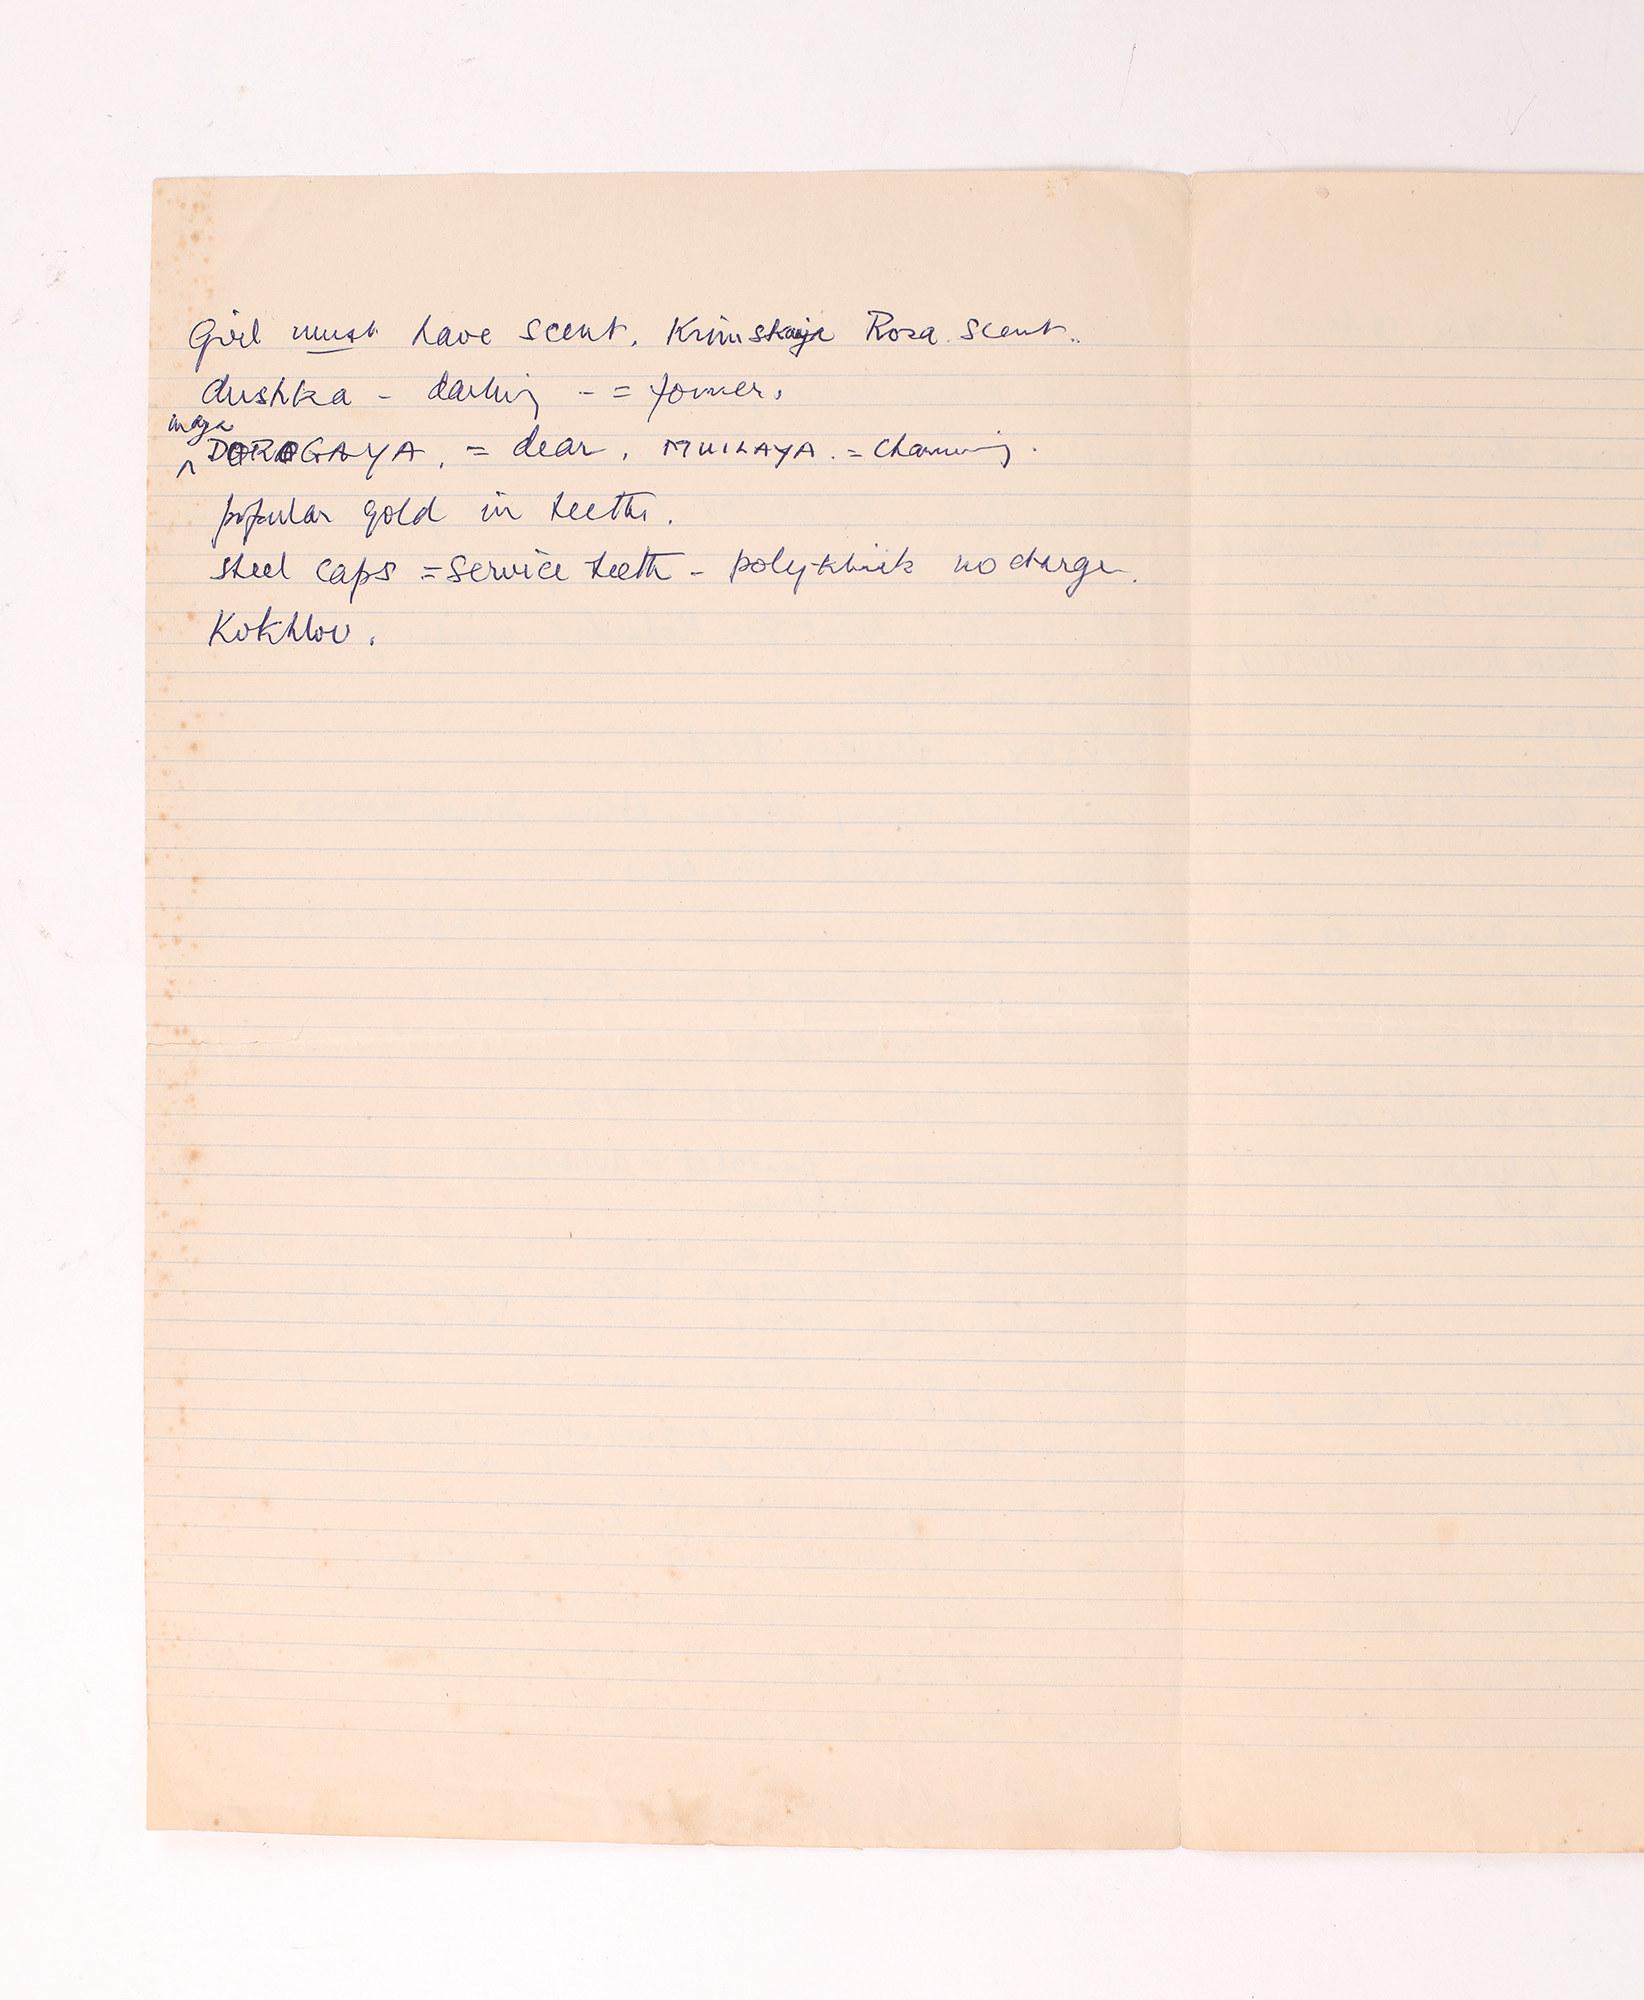 Girl must have scent. Krimskaja Roza scent.
dushka - darling - = former.
maya
DOROGAYA. = dear. MUILAYA. = charming.
popular gold in teeth.
steel caps = service teeth - polyklinik no charge.
Kokhlov.